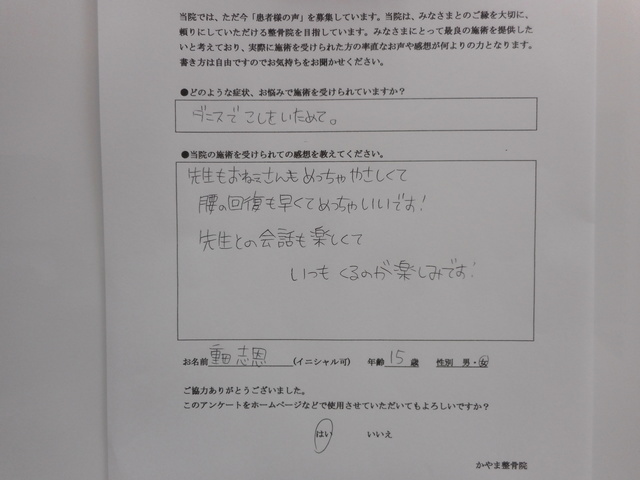 当院では、ただ今「患者様の声」を募集しています。当院は、みなさまとのご縁を大切に、
頼りにしていただける整骨院を目指しています。みなさまにとって最良の施術を提供した
いと考えており、実際に施術を受けられた方の率直なお声や感想が何よりの力となります。
書き方は自由ですのでお気持ちをお聞かせください。
●どのような症状、お悩みで施術を受けられていますか？
ダンスで こしをいためて。
●当院の施術を受けられての感想を教えてください。
先生もおねえさんもめっちゃやさしくて
腰の回復も早くてめっちゃいいです!
先生との会話も楽しくて
いつも くるのが楽しみです!
お名前 重田 志恩 (イニシャル可) 年齢 15 歳 性別 男・女
ご協力ありがとうございました。
このアンケートをホームページなどで使用させていただいてもよろしいですか？
はい いいえ
かやま整骨院